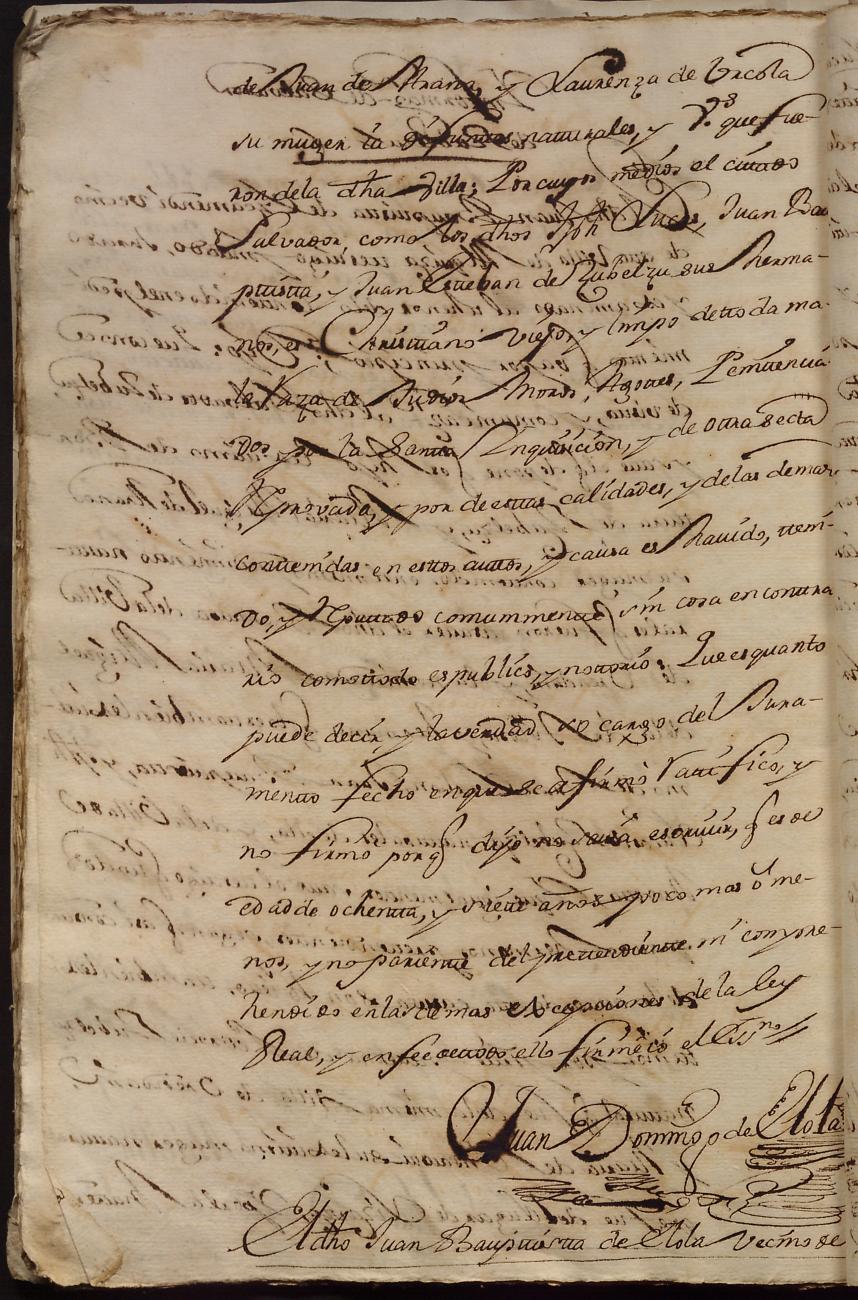 de Juan de Arana, y Laurenza de Urcola
su muger ia difuntos naturales, y v.os que fue-
ron dela dha Villa; Por cuyos medios el citado
Salvador, como los dhos Jph Lucas, Juan Bap
ptista, y Juan Esteban de Zubelzu sus Herma-
nos, es Christiano viejo y limpo de toda ma-
la Raza de Judios Moros, Agotes, Penitencia
dos por la Santa Inquisicion, y de otra secta
Reprovada, y por de estas calidades, y delas demas
contenidas en estos autos, y causa es Havido, teni-
do, y Reputado comunmente sin cosa en contra
rio como todo es publico, y nottorio: Que es quanto
puede decir y la verdad so cargo del Jura-
mento fecho en que se afirmó Ratificó, y
no firmo porq dijo no savia escrivir, q es de
edad de ochenta, y siete años poco mas ó me-
nos, y no pariente del pretendiente ni compre-
hendido en las demas excepciones de la ley
Real, y en fee de todo ello firmé io el Ess.no
Juan Domingo de Elola
El dho Juan Bauptista de Elola Vecino de